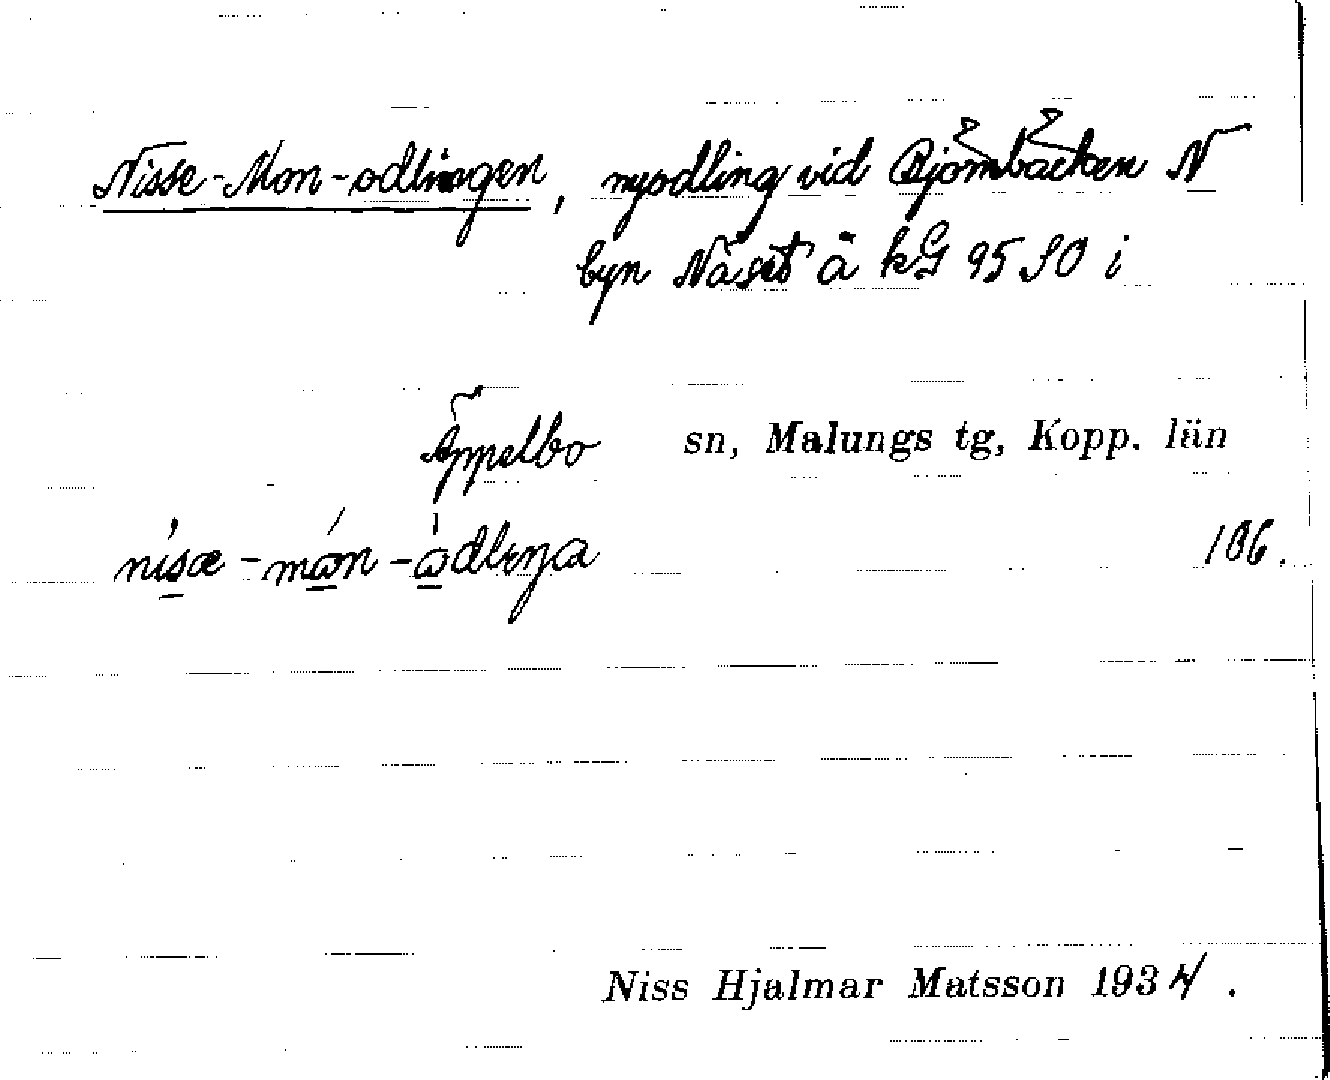 Nisse-Mon-odlingen, nyodling vid Björnbäcken N
byn Näset å kG 9590 i
Äppelbo sn, Malungs tg, Kopp. län
186.
Niss Hjalmar Matsson 1934.